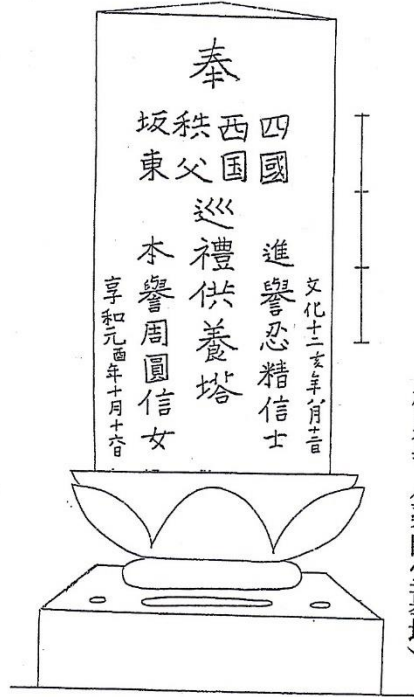 奉
四國
西国
秩父
坂東
巡禮供養塔
文化十二亥年八月
進譽忍精信士
本譽周圓信女
享和元酉年十月十六日